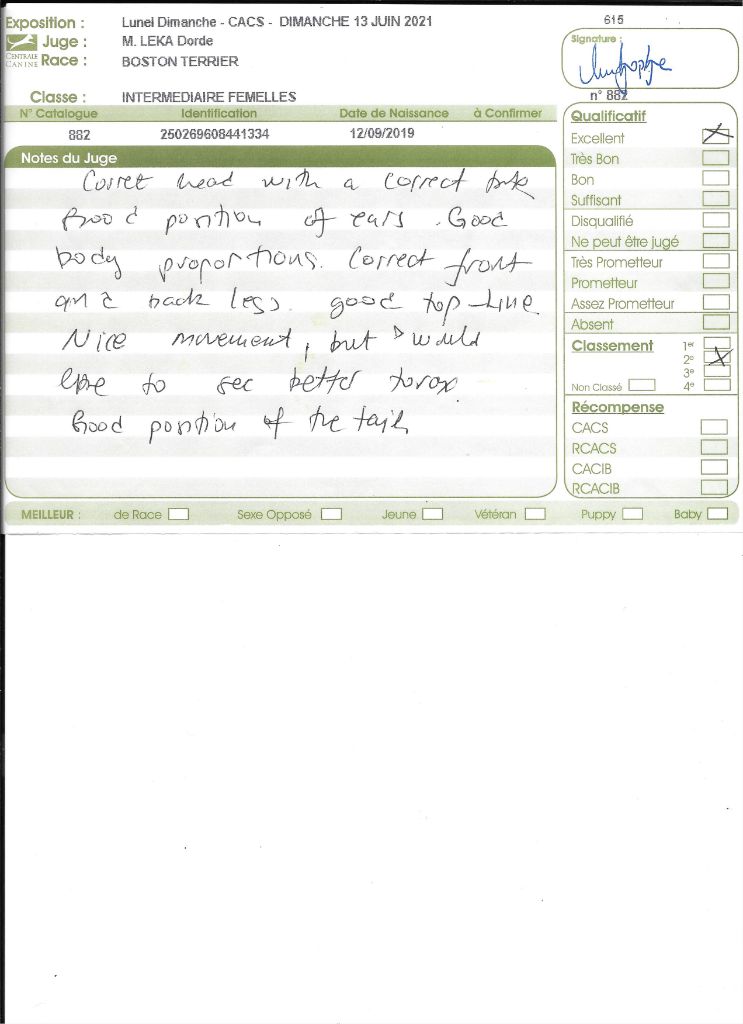 Exposition : Lunel Dimanche - CACS - DIMANCHE 13 JUIN 2021
615
Juge : M. LEKA Dorde
CENTRALE CANINE
Race : BOSTON TERRIER
Signature :
n° 882
Classe : INTERMEDIAIRE FEMELLES
N° Catalogue Identification Date de Naissance à Confirmer
882 250269608441334 12/09/2019
Notes du Juge
Correct head with a correct
Good position of ears. Good
body proportions. Correct front
and back legs. good top-line
Nice movement, but I would
like to see better torax
Good position of the tail.
Qualificatif
Excellent
Très Bon
Bon
Suffisant
Disqualifié
Ne peut être jugé
Très Prometteur
Prometteur
Assez Prometteur
Absent
Classement 1er
2e
3e
Non Classé 4e
Récompense
CACS
RCACS
CACIB
RCACIB
MEILLEUR : de Race Sexe Opposé Jeune Vétéran Puppy Baby